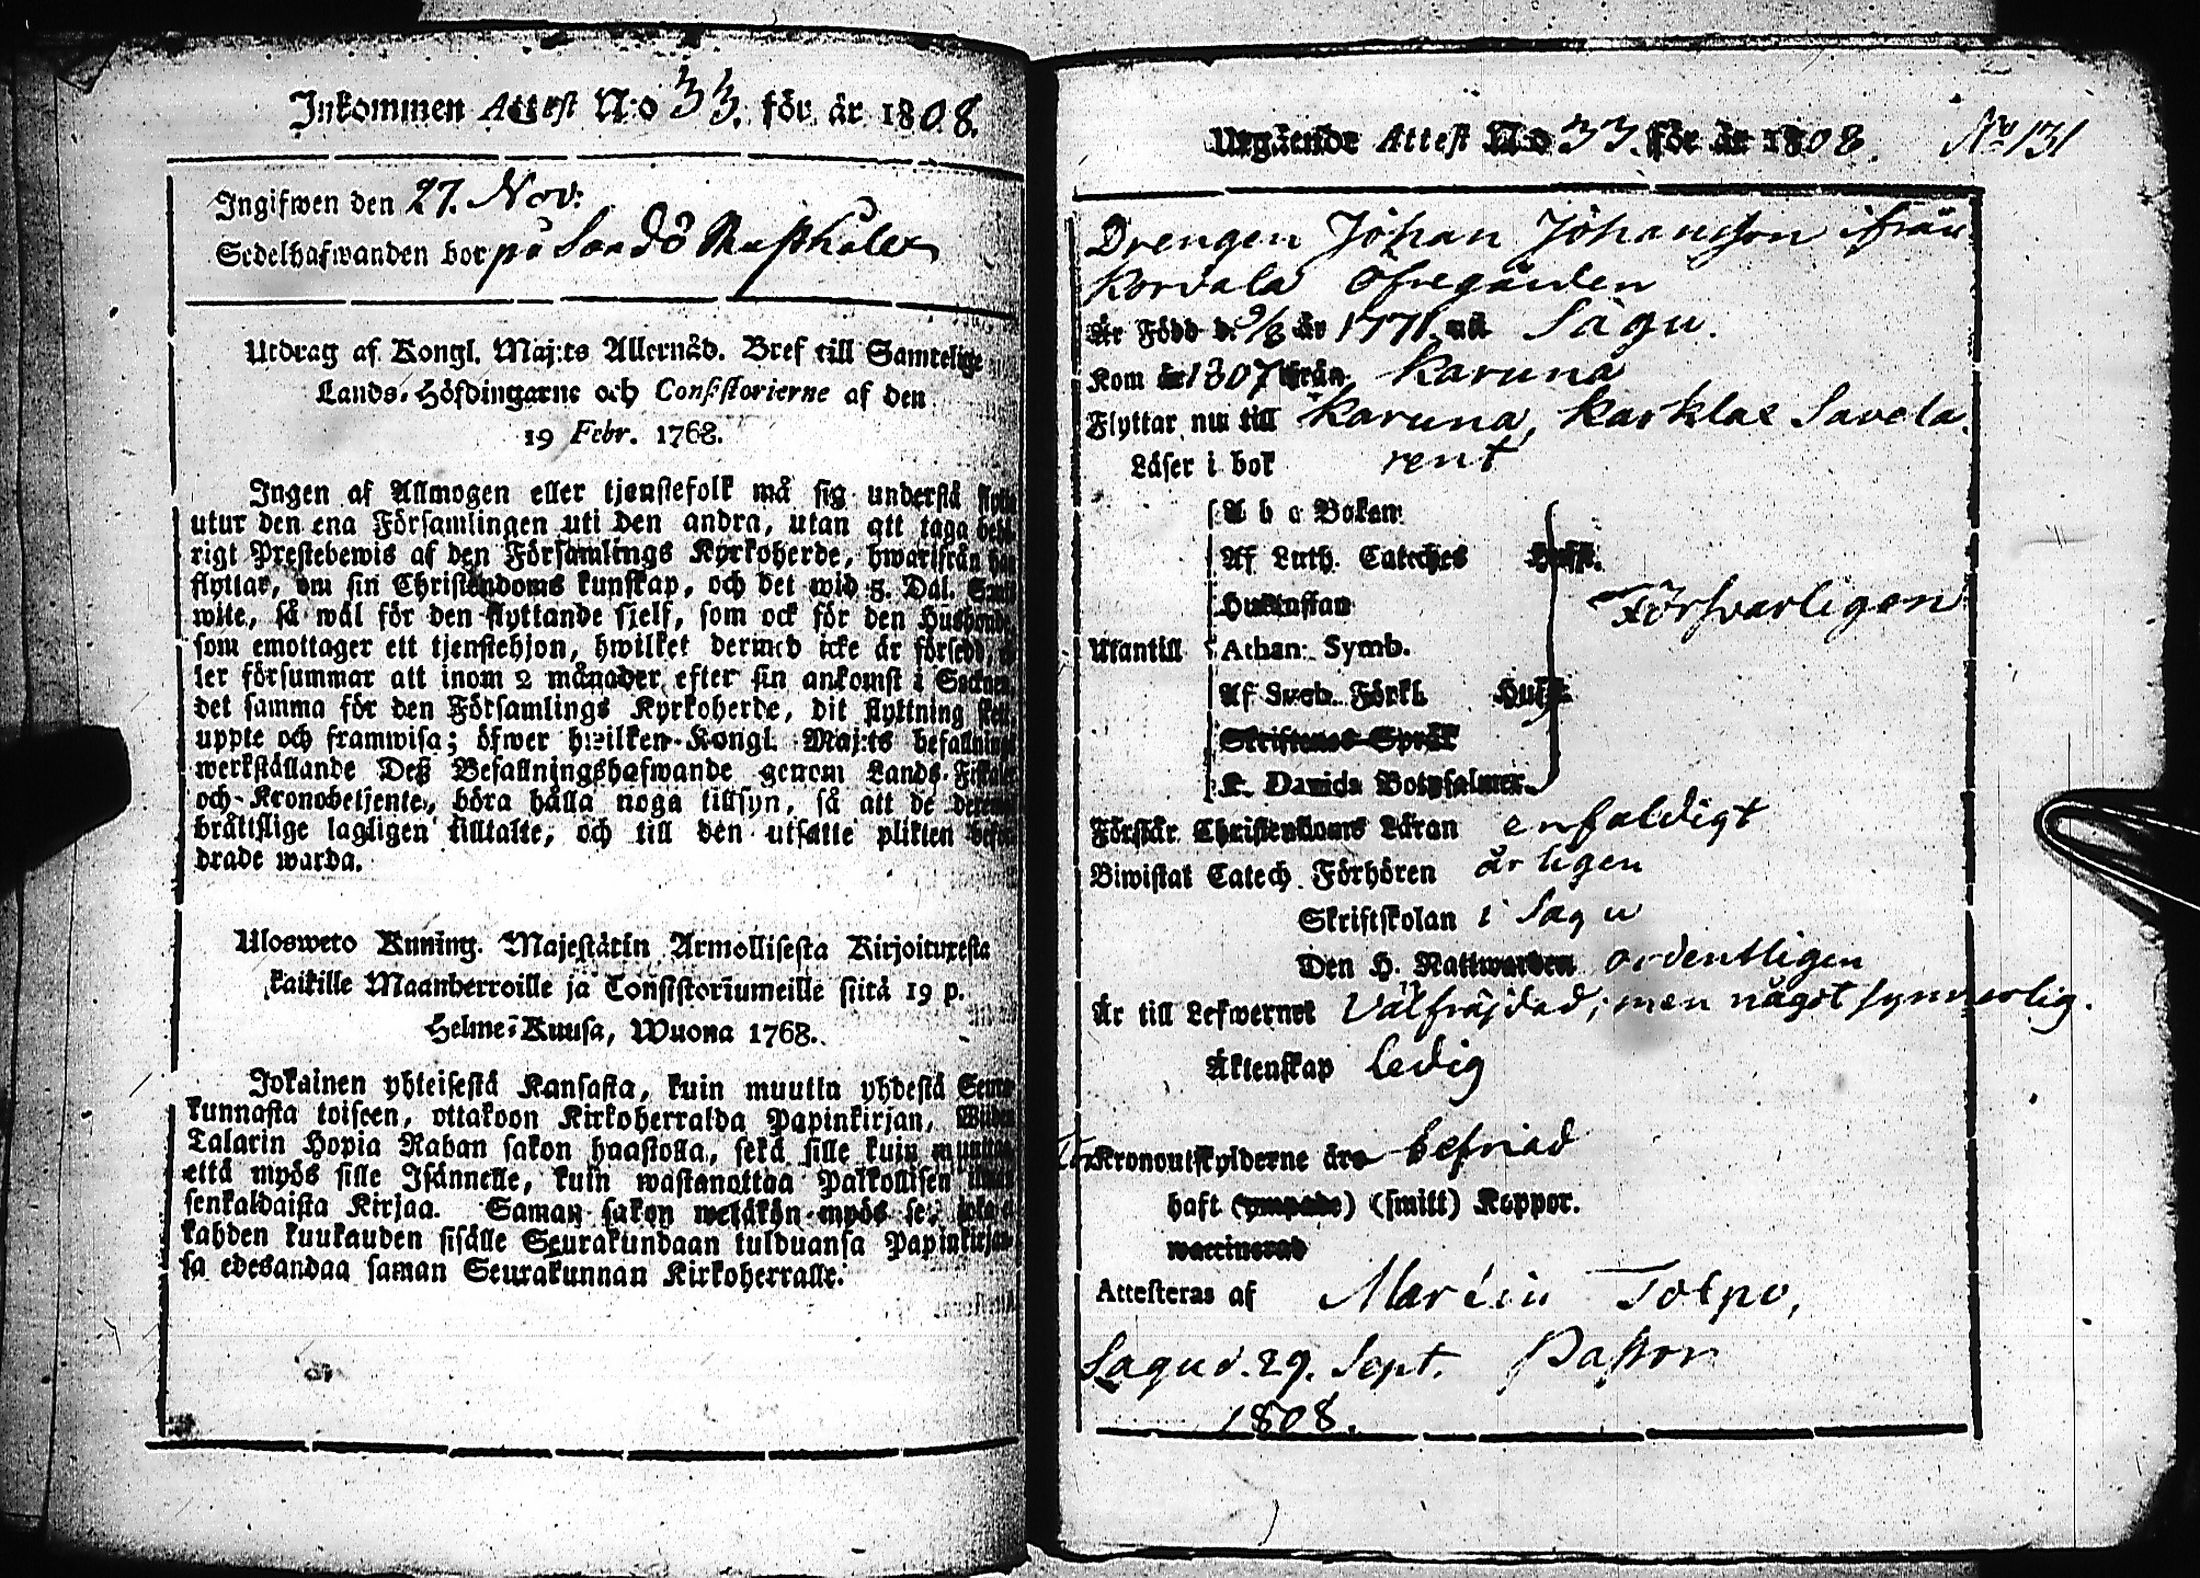 Inkommen Attest N:o 33. för år 1808.
Ingifwen den 27. Nov:
Sedelhafwanden bor på Sandö
Utdrag af Kongl. Maj:ts Allernåd. Bref till Samtelige
Lands-Höfdingarne och Consistorierne af den
19 Febr. 1768.
Ingen af Allmogen eller tjenstefolk må sig understå flytta
utur den ena Församlingen uti den andra, utan att taga behö-
rigt Prestebewis af den Församlings Kyrkoherde, hwarifrån han
flyttar, om sin Christendoms kunskap, och det wid 5. Dal. Smt
wite, så wäl för den flyttande sjelf, som ock för den Husbonde,
som emottager ett tjenstehjon, hwilket dermed icke är försedt, el-
ler försummar att inom 2 månader efter sin ankomst i Socknen,
det samma för den Församlings Kyrkoherde, dit flyttning skett,
uppte och framwisa; öfwer hwilken Kongl. Maj:ts befallnings
werkställande Deß Befallningshafwande genom Lands-Fiskaler
och Kronobetjente, böra hålla noga tillsyn, så att de deremot
bråttslige lagligen tilltalte, och till den utsatte plikten befor-
drade warda.
Ulosweto Kuning. Majestätin Armollisesta Kirjoituxesta
kaikille Maanherroille ja Consistoriumeille siitä 19 p.
Helme-Kuusa, Wuona 1768.
Jokainen yhteisestä Kansasta, kuin muutta yhdestä Seura-
kunnasta toiseen, ottakoon Kirkoherralda Papinkirjan, Wiiden
Talarin Hopia Rahan sakon haastolla, sekä sille kuin muuttaa,
että myös sille Isännelle, kuin wastanottaa Palkollisen ilman
senkaldaista Kirjaa. Saman sakon wetäkön myös se, joka ei
kahden kuukauden sisälle Seurakundaan tulduansa Papinkirjan-
sa edesandaa saman Seurakunnan Kirkoherralle.
Utgående Attest N:o 33. för år 1808. No 131
Drengen Johan Johansson ifrån
Kordala Öfregården
Är Född d. 9/8 år 1771. uti Sagu.
Kom år 1807 ifrån Karuna
Flyttar nu till Karuna, Karklax Savela.
Läser i bok rent
A b c Boken
Af Luth. Cateches Husst.
Hustaflan
Utantill Athan: Symb. Försvarligen
Af Sveb. Förkl.
Skriftenes Språk
K. Davids Botpsalmer.
Förstår Christendoms Läran enfaldigt
Biwistat Catech. Förhören årligen
Skriftskolan i Sagu
Den H. Nattwarden ordentligen
Är till Lefwernet Välfräjdad; men något
Äktenskap ledig
Kronoutskylderne äro befriad
haft (ympade) (smitt) Koppor.
waccinerad
Attesteras af Martin Tolpo,
Sagu d. 29. Sept. Pastor
1808.